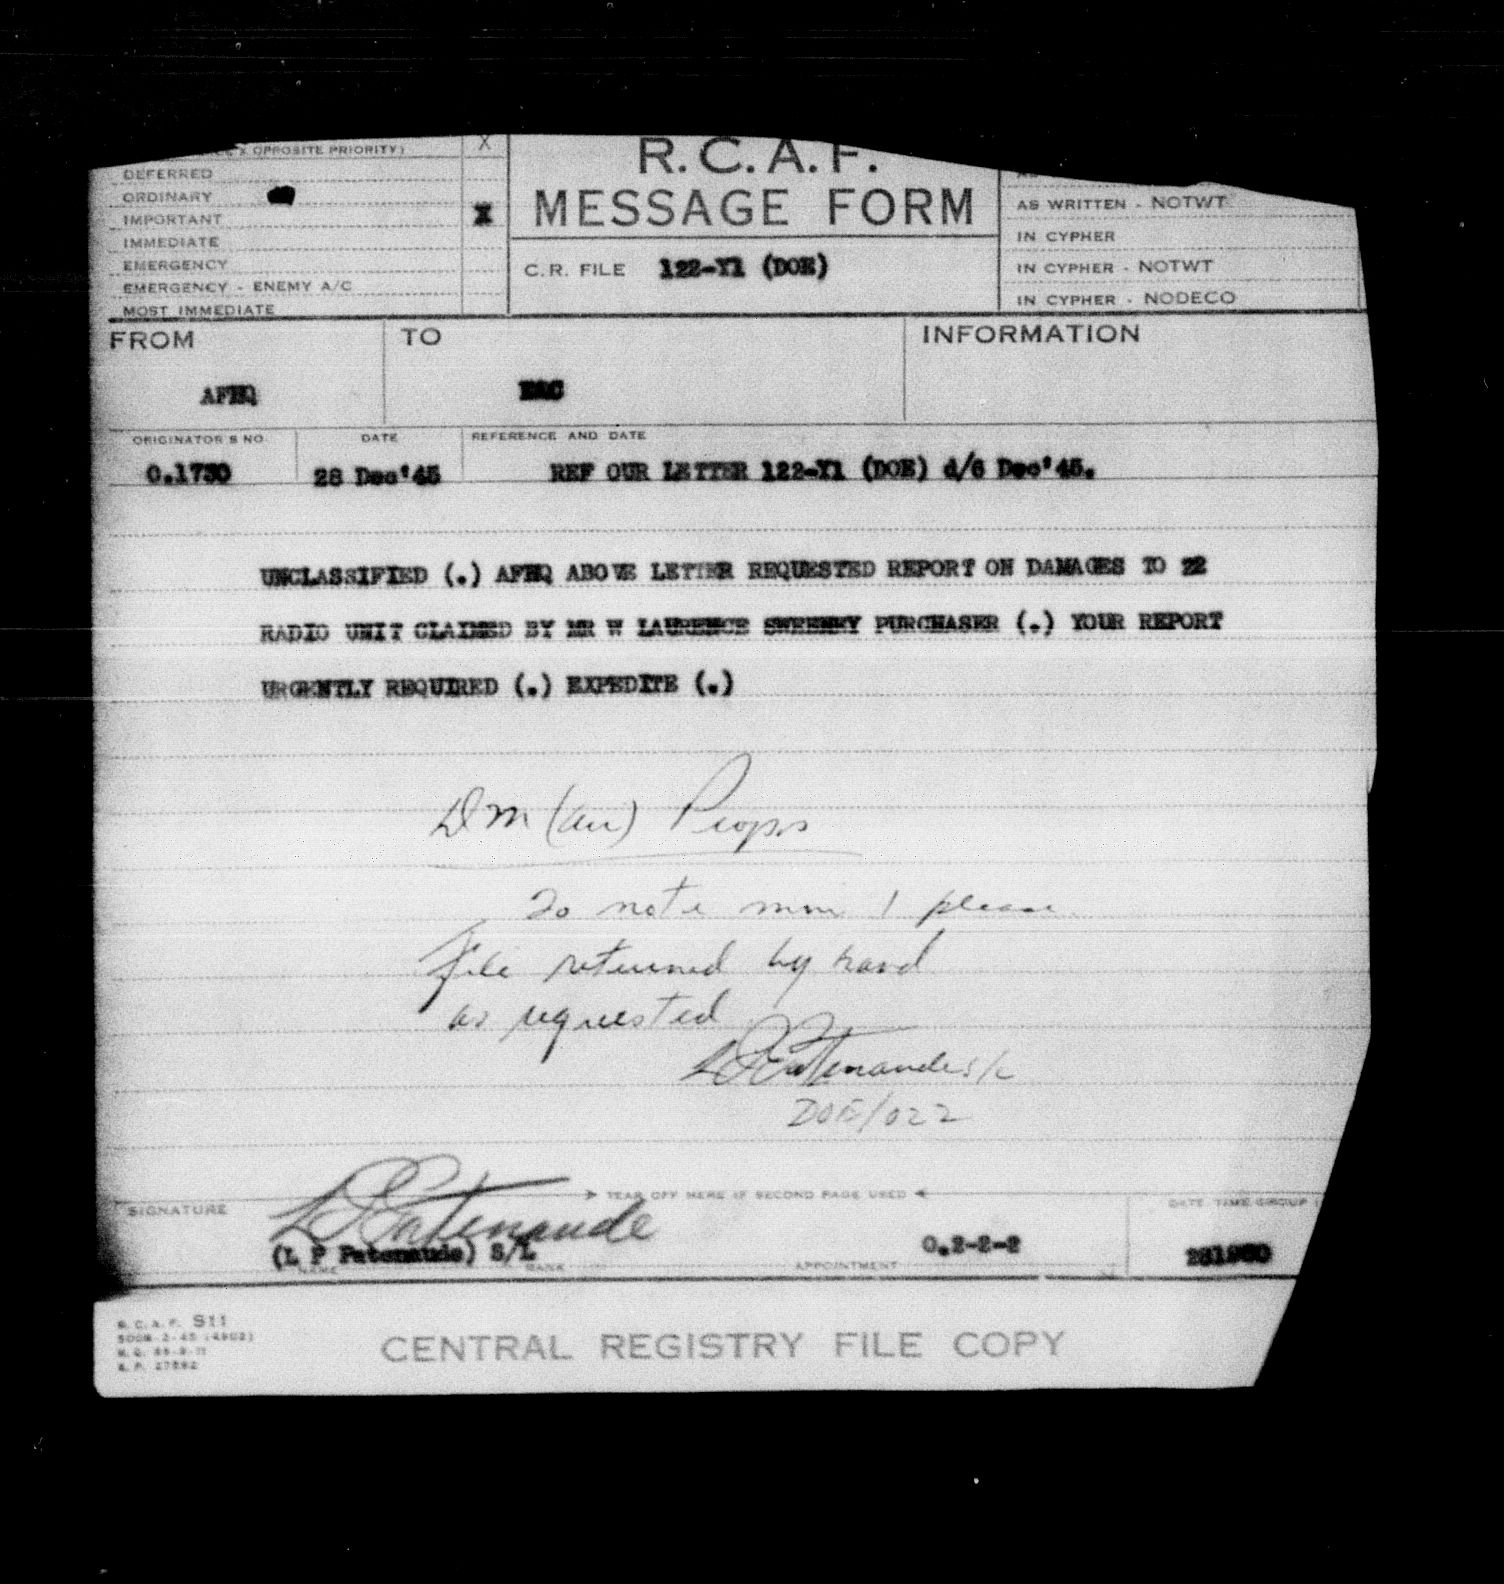 X OPPOSITE PRIORITY) X
DEFERRED
ORDINARY
IMPORTANT X
IMMEDIATE
EMERGENCY
EMERGENCY - ENEMY A/C
MOST IMMEDIATE
R.C.A.F.
MESSAGE FORM
C.R. FILE 122-Y1 (DOE)
AS WRITTEN - NOTWT
IN CYPHER
IN CYPHER - NOTWT
IN CYPHER - NODECO
FROM TO INFORMATION
AFHQ EAC
ORIGINATOR'S NO. DATE REFERENCE AND DATE
O.1730 28 Dec'45 REF OUR LETTER 122-Y1 (DOE) d/6 Dec'45.
UNCLASSIFIED (.) AFHQ ABOVE LETTER REQUESTED REPORT ON DAMAGES TO 22
RADIO UNIT CLAIMED BY MR W LAURENCE SWEENEY PURCHASER (.) YOUR REPORT
URGENTLY REQUIRED (.) EXPEDITE (.)
DM (air) Props
To note min 1 please
File returned by hand
as requested
L P Patenaude S/L
DOE/022
TEAR OFF HERE IF SECOND PAGE USED
SIGNATURE L P Patenaude DATE TIME GROUP
(L P Patenaude) S/L O.2-2-2
NAME RANK APPOINTMENT
R.C.A.F. S11
500M-2-45 (4802)
CENTRAL REGISTRY FILE COPY